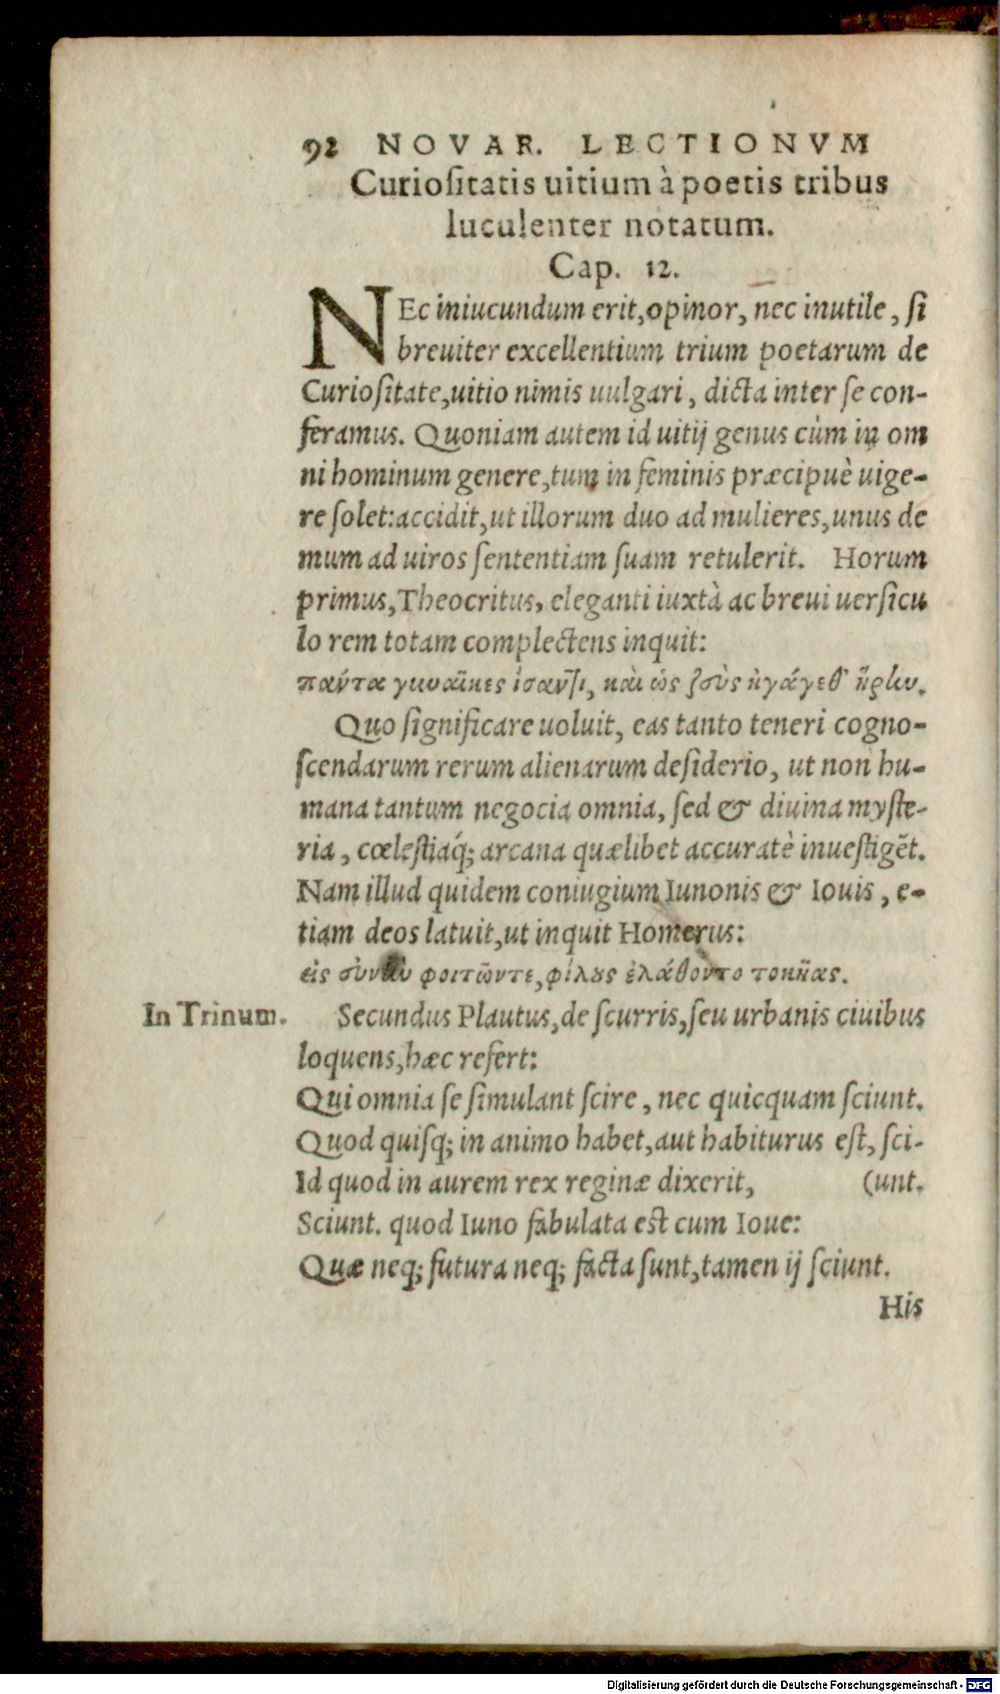 92 NOVAR. LECTIONVM
Curiositatis uitium à poetis tribus
luculenter notatum.
Cap. 12.
NEc iniucundum erit, opinor, nec inutile, si
breuiter excellentium trium poetarum de
Curiositate, uitio nimis uulgari, dicta inter se con-
feramus. Quoniam autem id uitij genus cùm in om
ni hominum genere, tum in feminis præcipuè uige-
re solet: accidit, ut illorum duo ad mulieres, unus de
mum ad uiros sententiam suam retulerit. Horum
primus, Theocritus, eleganti iuxtà ac breui uersicu
lo rem totam complectens inquit:
πάντα γυναῖκες ἴσαντι, καὶ ὡς ζεὺς ἠγάγεθ᾽ ἥρην.
Quo significare uoluit, eas tanto teneri cogno-
scendarum rerum alienarum desiderio, ut non hu-
mana tantum negocia omnia, sed & diuina myste-
ria, cœlestiaq́; arcana quælibet accuratè inuestigẽt.
Nam illud quidem coniugium Iunonis & Iouis, e-
tiam deos latuit, ut inquit Homerus:
εἰς φοιτῶντε, φίλους ἐλάθοντο τοκῆας.
In Trinum. Secundus Plautus, de scurris, seu urbanis ciuibus
loquens, hæc refert:
Qui omnia se simulant scire, nec quicquam sciunt.
Quod quisq; in animo habet, aut habiturus est, sci-
Id quod in aurem rex reginæ dixerit, (unt.
Sciunt. quod Iuno fabulata est cum Ioue:
Quæ neq; futura neq; facta sunt, tamen ij sciunt.
His
Digitalisierung gefördert durch die Deutsche Forschungsgemeinschaft - DFG